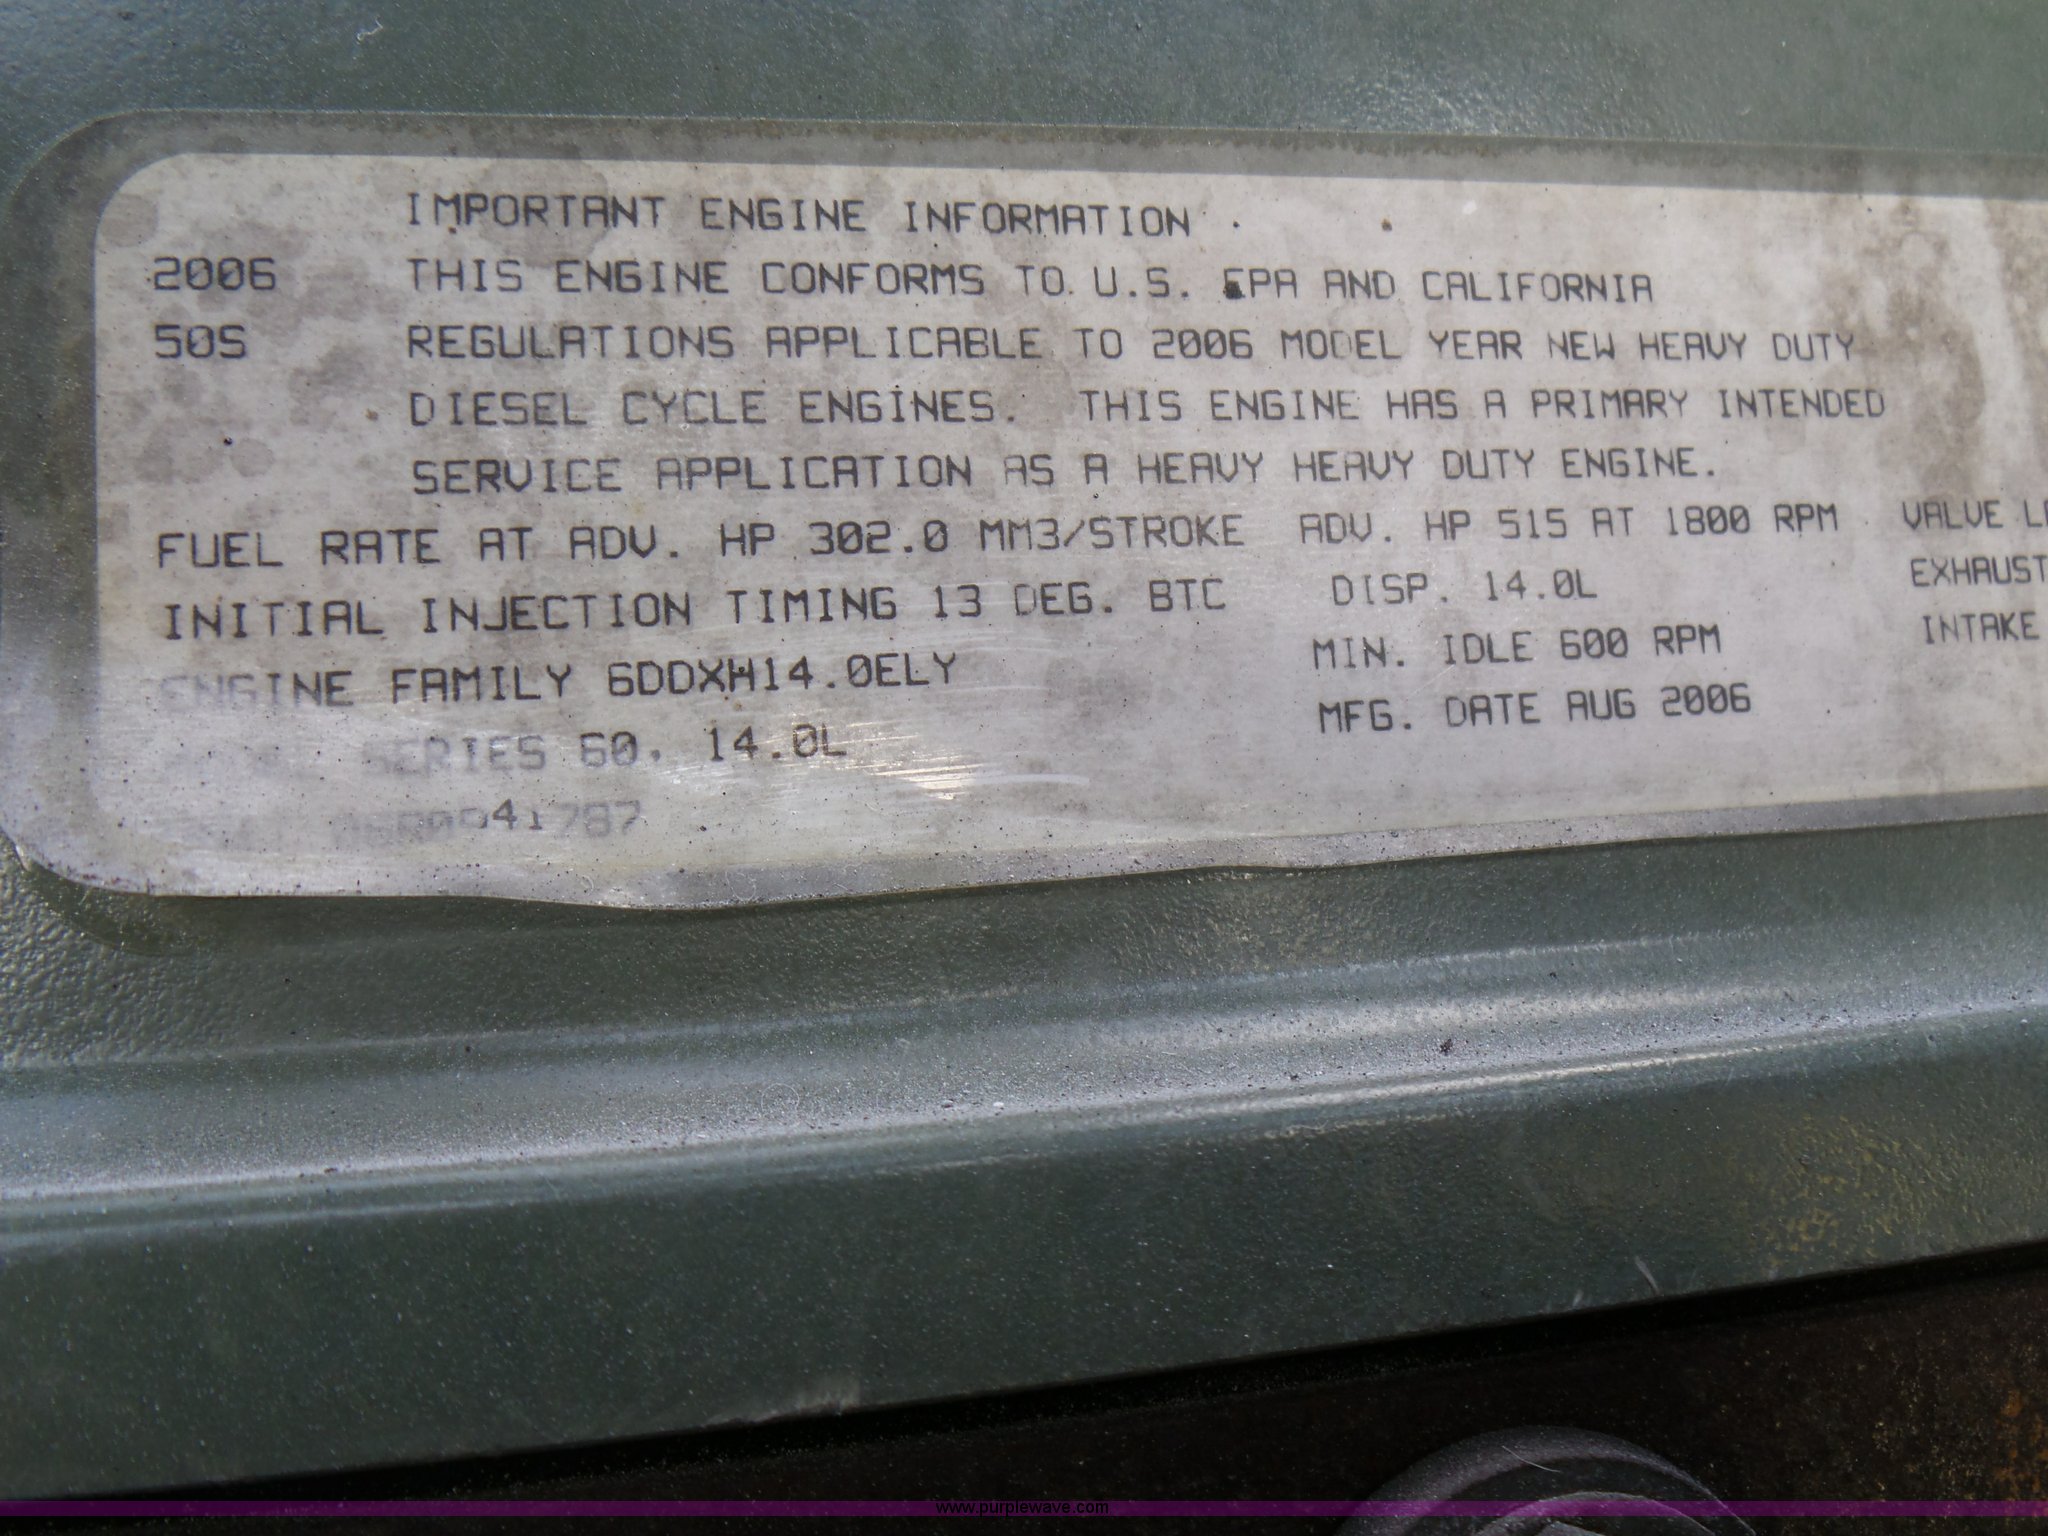 IMPORTANT ENGINE INFORMATION
2006 THIS ENGINE CONFORMS TO U.S. EPA AND CALIFORNIA
50S REGULATIONS APPLICABLE TO 2006 MODEL YEAR NEW HEAVY DUTY
DIESEL CYCLE ENGINES. THIS ENGINE HAS A PRIMARY INTENDED
SERVICE APPLICATION AS A HEAVY HEAVY DUTY ENGINE.
FUEL RATE AT ADV. HP 302.0 MM3/STROKE ADV. HP 515 AT 1800 RPM VALVE
INITIAL INJECTION TIMING 13 DEG. BTC DISP. 14.0L EXHAUST
ENGINE FAMILY 6DDXH14.0ELY MIN. IDLE 600 RPM INTAKE
SERIES 60, 14.0L MFG. DATE AUG 2006
www.purplewave.com